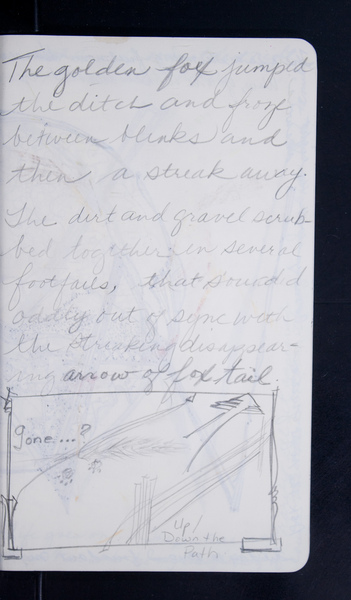 The golden fox jumped
the ditch and froze
between blinks and
then a streak away.
The dirt and gravel scrub-
bed together in several
footfalls, that sounded
oddly out of sync with
the streaking disappear-
ing arrow of fox tail.
gone...?
Up/
Down the
Path